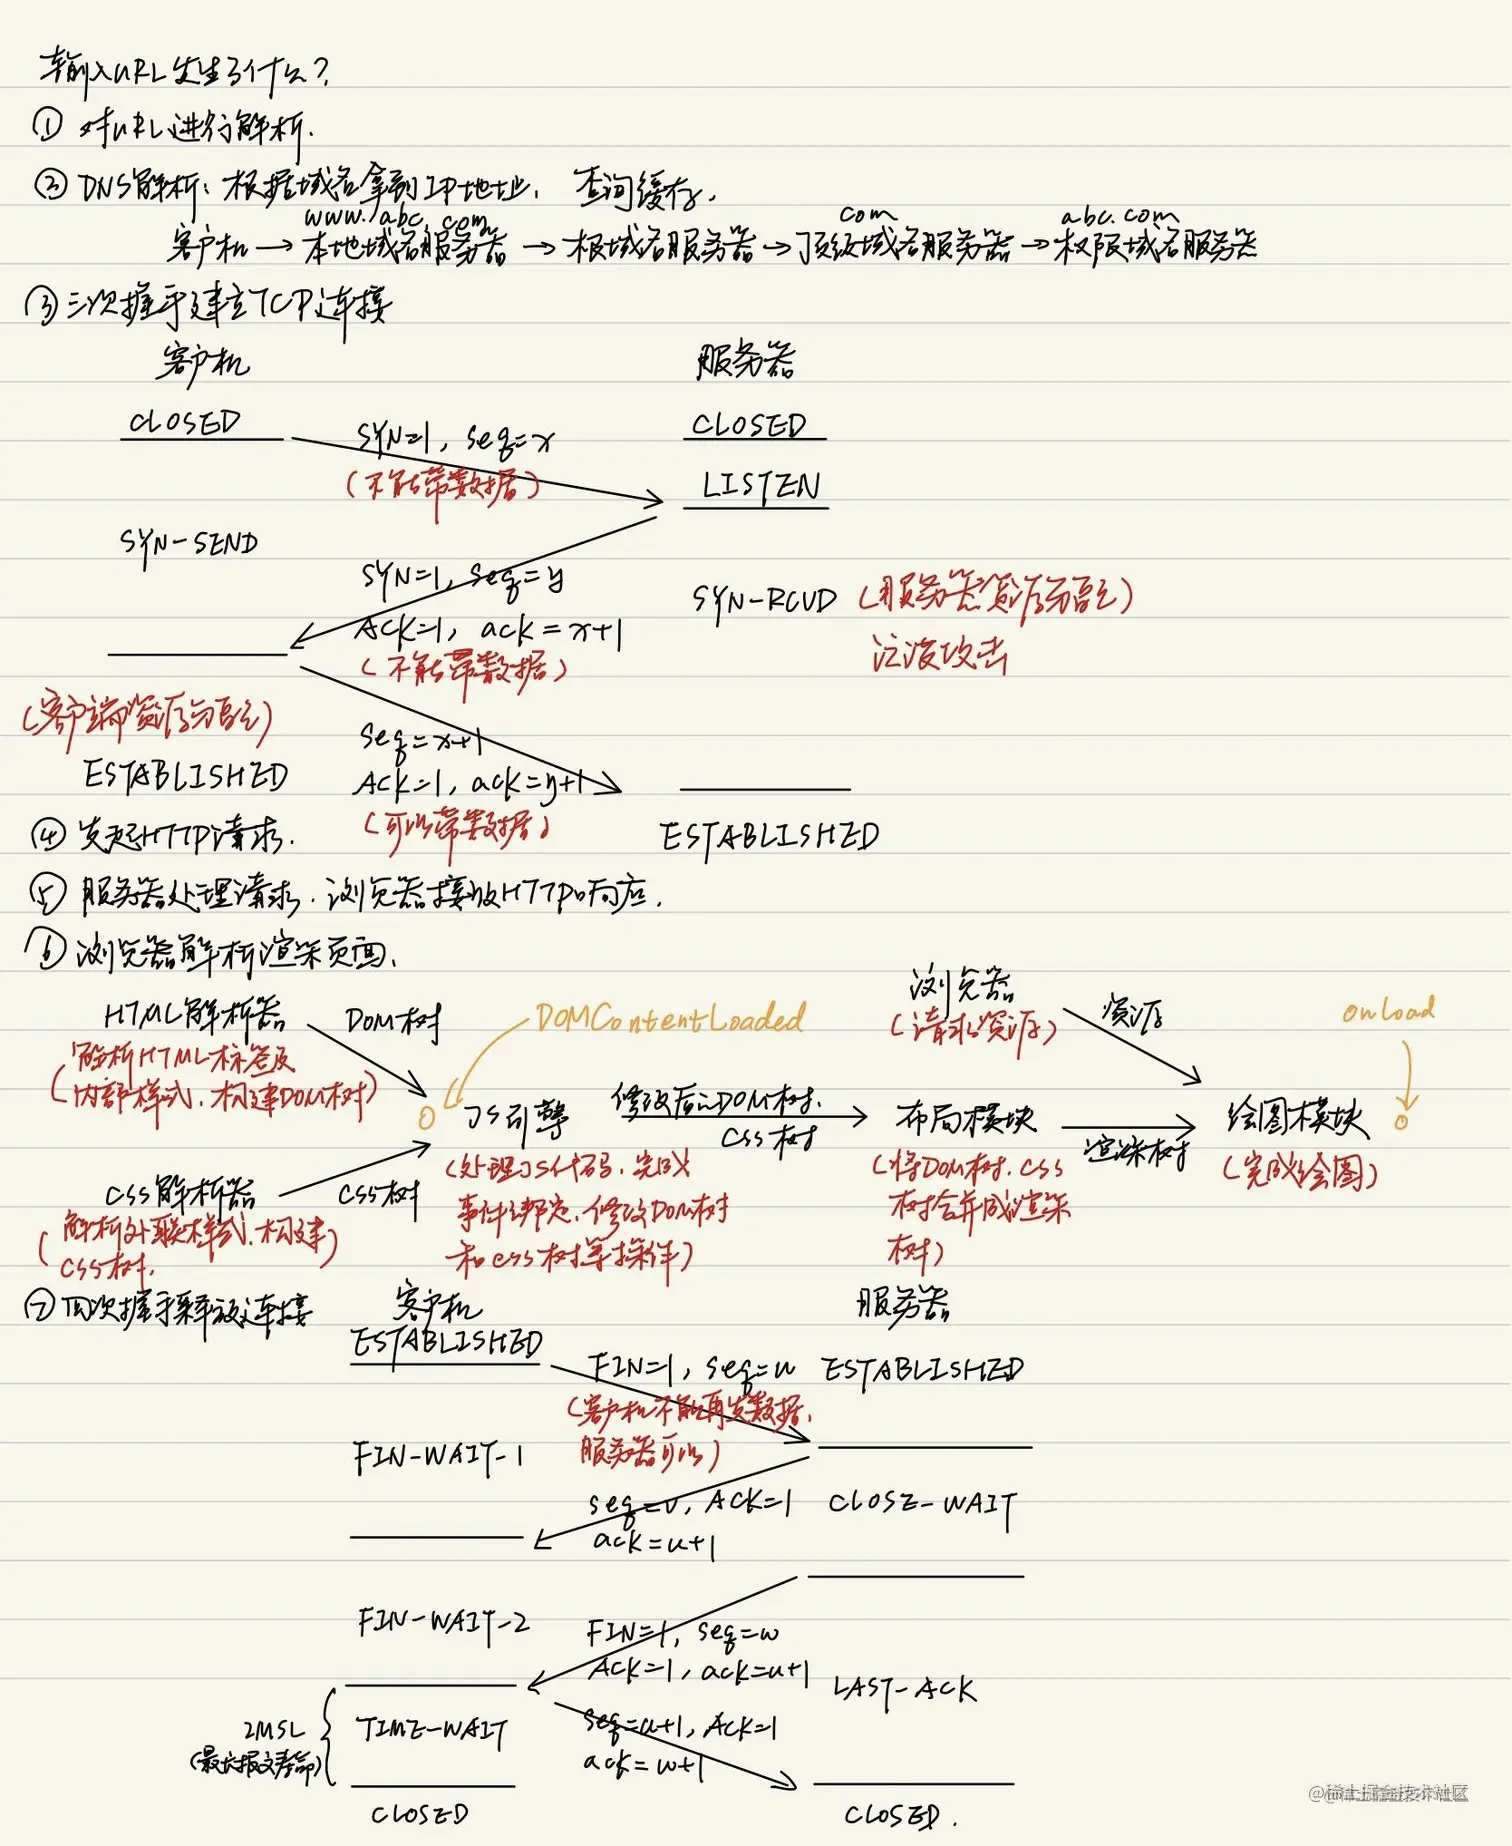 输入URL发生了什么?
① 对URL进行解析.
② DNS解析: 根据域名拿到IP地址, 查询缓存.
www.abc.com com abc.com
客户机→本地域名服务器→根域名服务器→顶级域名服务器→权限域名服务器
③ 三次握手建立TCP连接
客户机 服务器
CLOSED CLOSED
SYN=1, seq=x
(不能带数据)
LISTEN
SYN-SEND
SYN=1, seq=y
ACK=1, ack=x+1
(不能带数据)
SYN-RCVD (服务器资源分配)
泛洪攻击
(客户端资源分配)
ESTABLISHED
seq=x+1
ACK=1, ack=y+1
(可以带数据)
ESTABLISHED
④ 发起HTTP请求.
⑤ 服务器处理请求. 浏览器接收HTTP响应.
⑥ 浏览器解析渲染页面.
HTML解析器
(解析HTML标签及
内部样式, 构建DOM树)
DOM树
DOMContentLoaded
CSS解析器
(解析外联样式, 构建
CSS树.
CSS树
JS引擎
(处理JS代码, 完成
事件绑定, 修改DOM树
和css树等操作)
修改后的DOM树,
CSS树
浏览器
(请求资源)
资源
布局模块
(将DOM树, CSS
树合并成渲染
树)
渲染树
绘图模块
(完成绘图)
onload
⑦ 四次握手释放连接
客户机 服务器
ESTABLISHED ESTABLISHED
FIN=1, seq=u
(客户机不能再发数据,
服务器可以)
FIN-WAIT-1
seq=v, ACK=1
ack=u+1
CLOSE-WAIT
FIN-WAIT-2
FIN=1, seq=w
ACK=1, ack=u+1
LAST-ACK
2MSL
(最长报文寿命)
TIME-WAIT
seq=u+1, ACK=1
ack=w+1
CLOSED CLOSED.
@稀土掘金技术社区